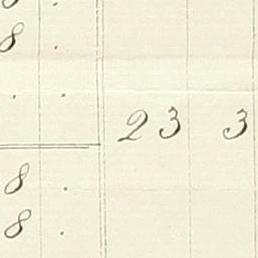 8 .
8 .
. .
23 3
8 .
8 .